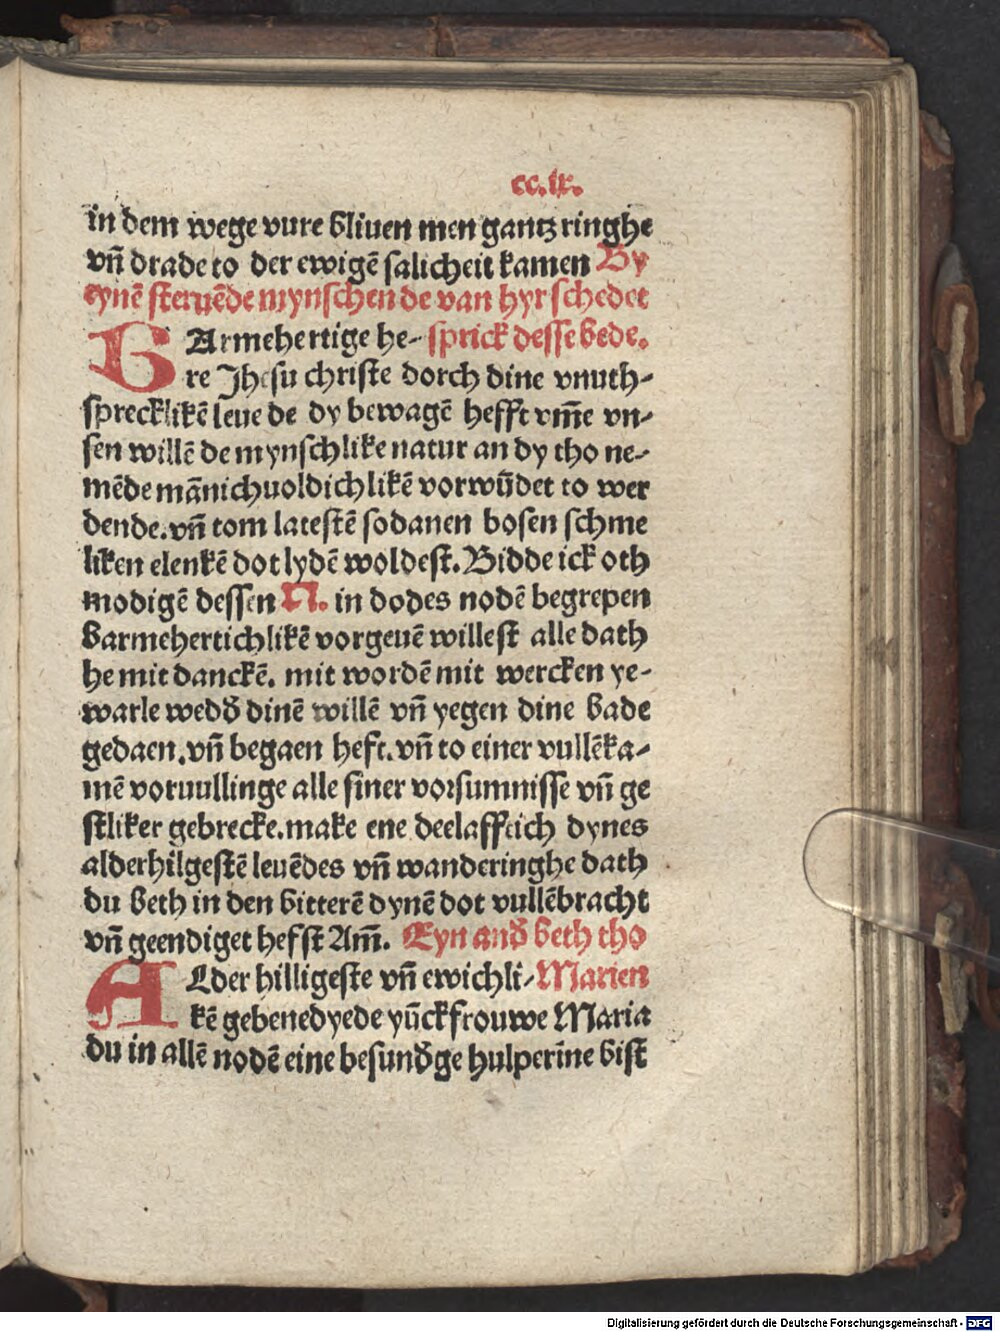 cc.ix.
in dem wege vure bliuen men gantz ringhe
vñ drade to der ewigē salicheit kamen By
eynē steruēde mynschen de van hyr schedet
BArmehertige he- sprick desse bede.
re Jhesu christe dorch dine vnuth-
sprecklikē leue de dy bewagē hefft vm̄e vn-
sen willē de mynschlike natur an dy tho ne-
mēde mānichuoldichlikē vorwūdet to wer
dende. vñ tom latestē sodanen bosen schme
liken elenkē dot lydē woldest. Bidde ick oth
modigē dessen N. in dodes nodē begrepen
barmehertichlikē vorgeuē willest alle dath
he mit danckē. mit wordē mit wercken ye-
warle wedd̄ dinē willē vñ yegen dine bade
gedaen. vñ begaen heft. vñ to einer vullēka-
mē voruullinge alle siner vorsumnisse vñ ge
stliker gebrecke. make ene deelafftich dynes
alderhilgestē leuēdes vñ wanderinghe dath
du beth in den bitterē dynē dot vullēbracht
vñ geendiget hefst Am̄. Eyn and̄ beth tho
ALder hilligeste vñ ewichli- Marien
kē gebenedyede yūckfrouwe Maria
du in allē nodē eine besund̄ge hulperīne bist
Digitalisierung gefördert durch die Deutsche Forschungsgemeinschaft - DFG